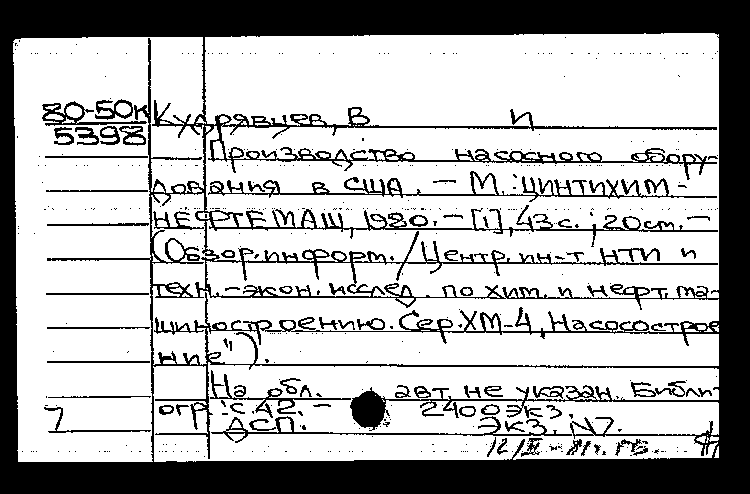 80-50к Кудрявцев, В И
5398
Производство насосного обору-
дования в США. – М.: ЦИНТИХИМ-
НЕФТЕМАШ, 1980. – [1], 43 с.; 20 см. –
(Обзор. информ. / Центр. ин-т НТИ и
техн.-экон. исслед. по хим. и нефт. ма-
шиностроению. Сер. ХМ-4, Насосострое
ние").
На обл. авт. не указан. Библи
7 огр: с. 42. – 2400 экз.
ДСП. Экз. N7.
12/III – 81г. ГБ.